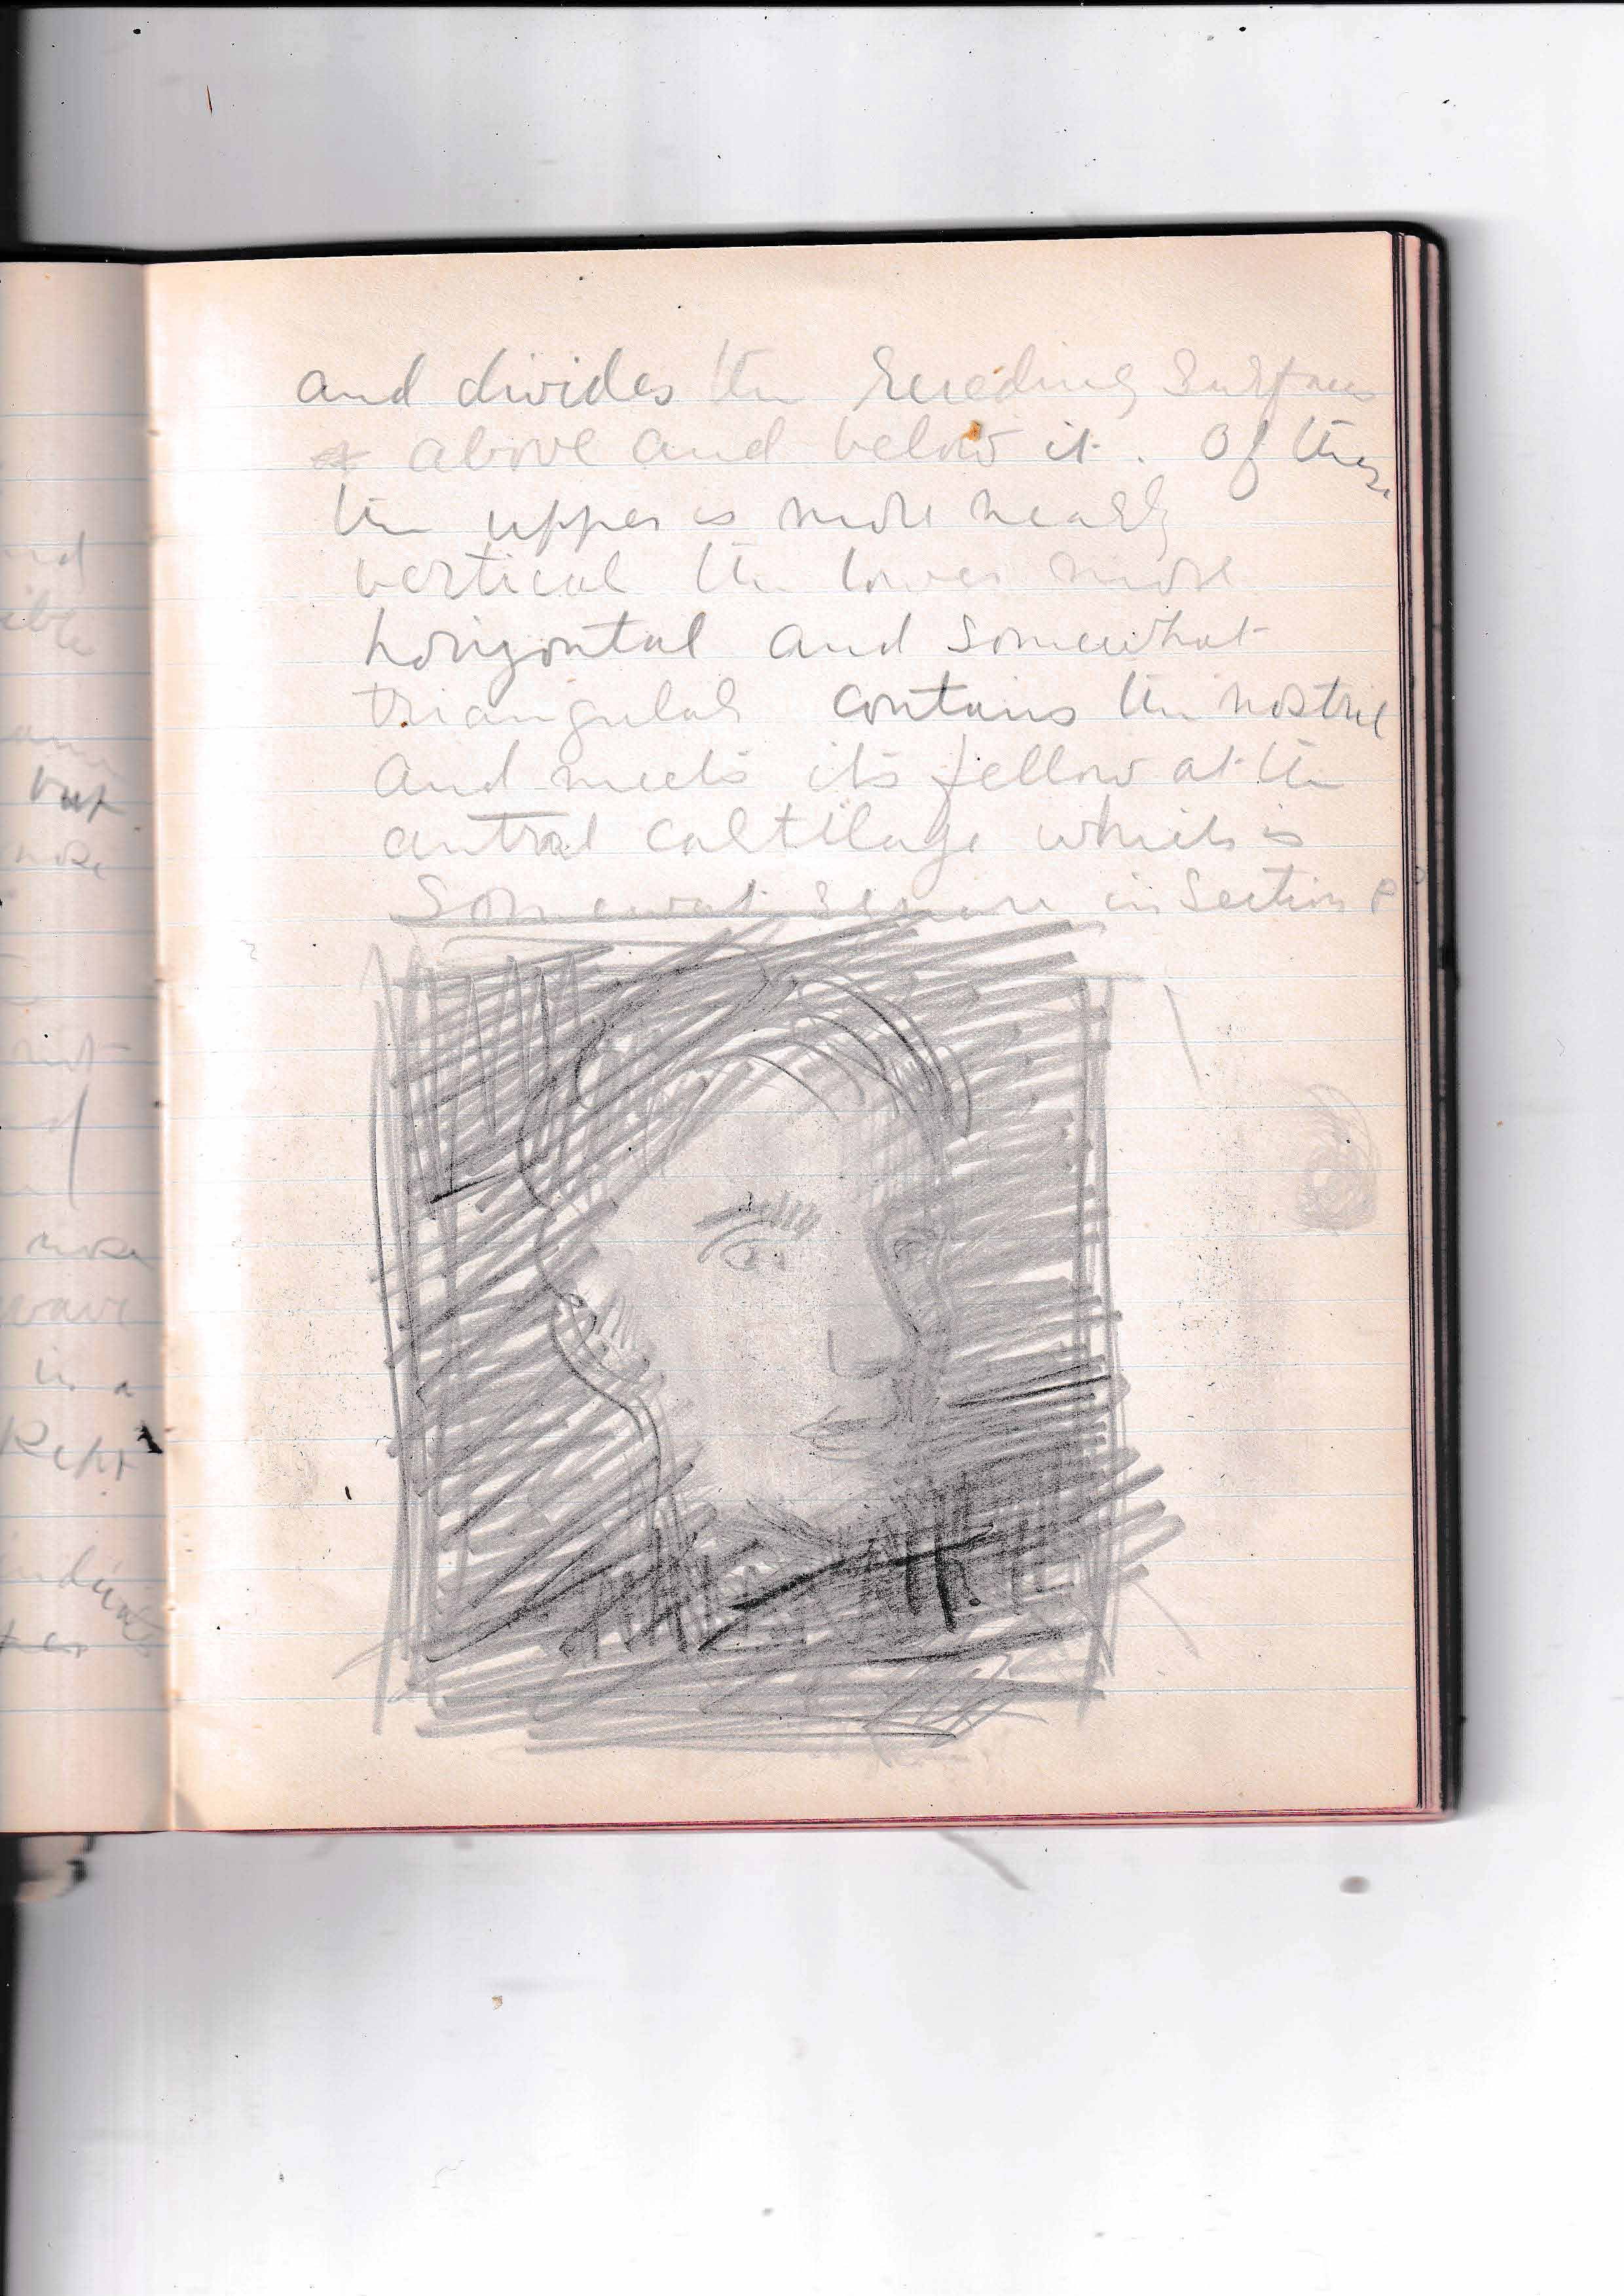 and divides the receding surfaces
above and below it. Of these
the upper is more nearly
vertical the lower more
horizontal and somewhat
triangular contains the nostril
and meets its fellow at the
central cartilage which is
Somewat square in section
nd
ible
but
nose
not
of
nose
wave
in a
Kept